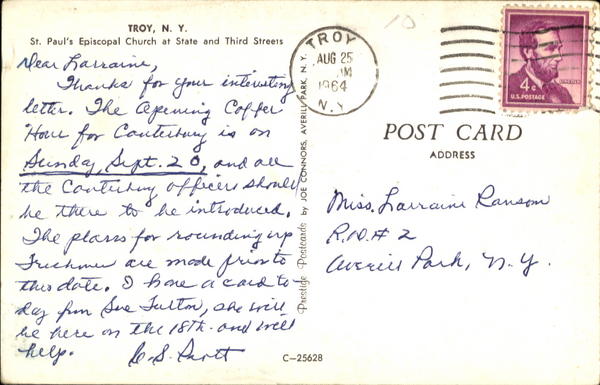 TROY, N. Y.
St. Paul's Episcopal Church at State and Third Streets
Dear Larraine,
Thanks for your interesting
letter. The Opening Coffee
Hour for Canterbury is on
Sunday, Sept. 20, and all
the Canterbury officers should
be there to be introduced.
The plans for rounding up
Freshmen are made prior to
this date. I have a card to-
day from Sue Furton, she will
be here on the 18th and will
help.
C-25628
Prestige Postcards by JOE CONNORS, AVERILL PARK, N. Y.
10
TROY
AUG 25
AM
1964
N.Y.
LINCOLN
4c
U.S. POSTAGE
POST CARD
ADDRESS
Miss. Larraine Ransom
R.D. # 2
Averill Park, N.Y.